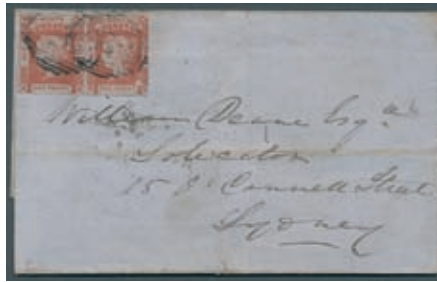 William Deane Esq.re
Solicitor
15 O'Connell Street
Sydney